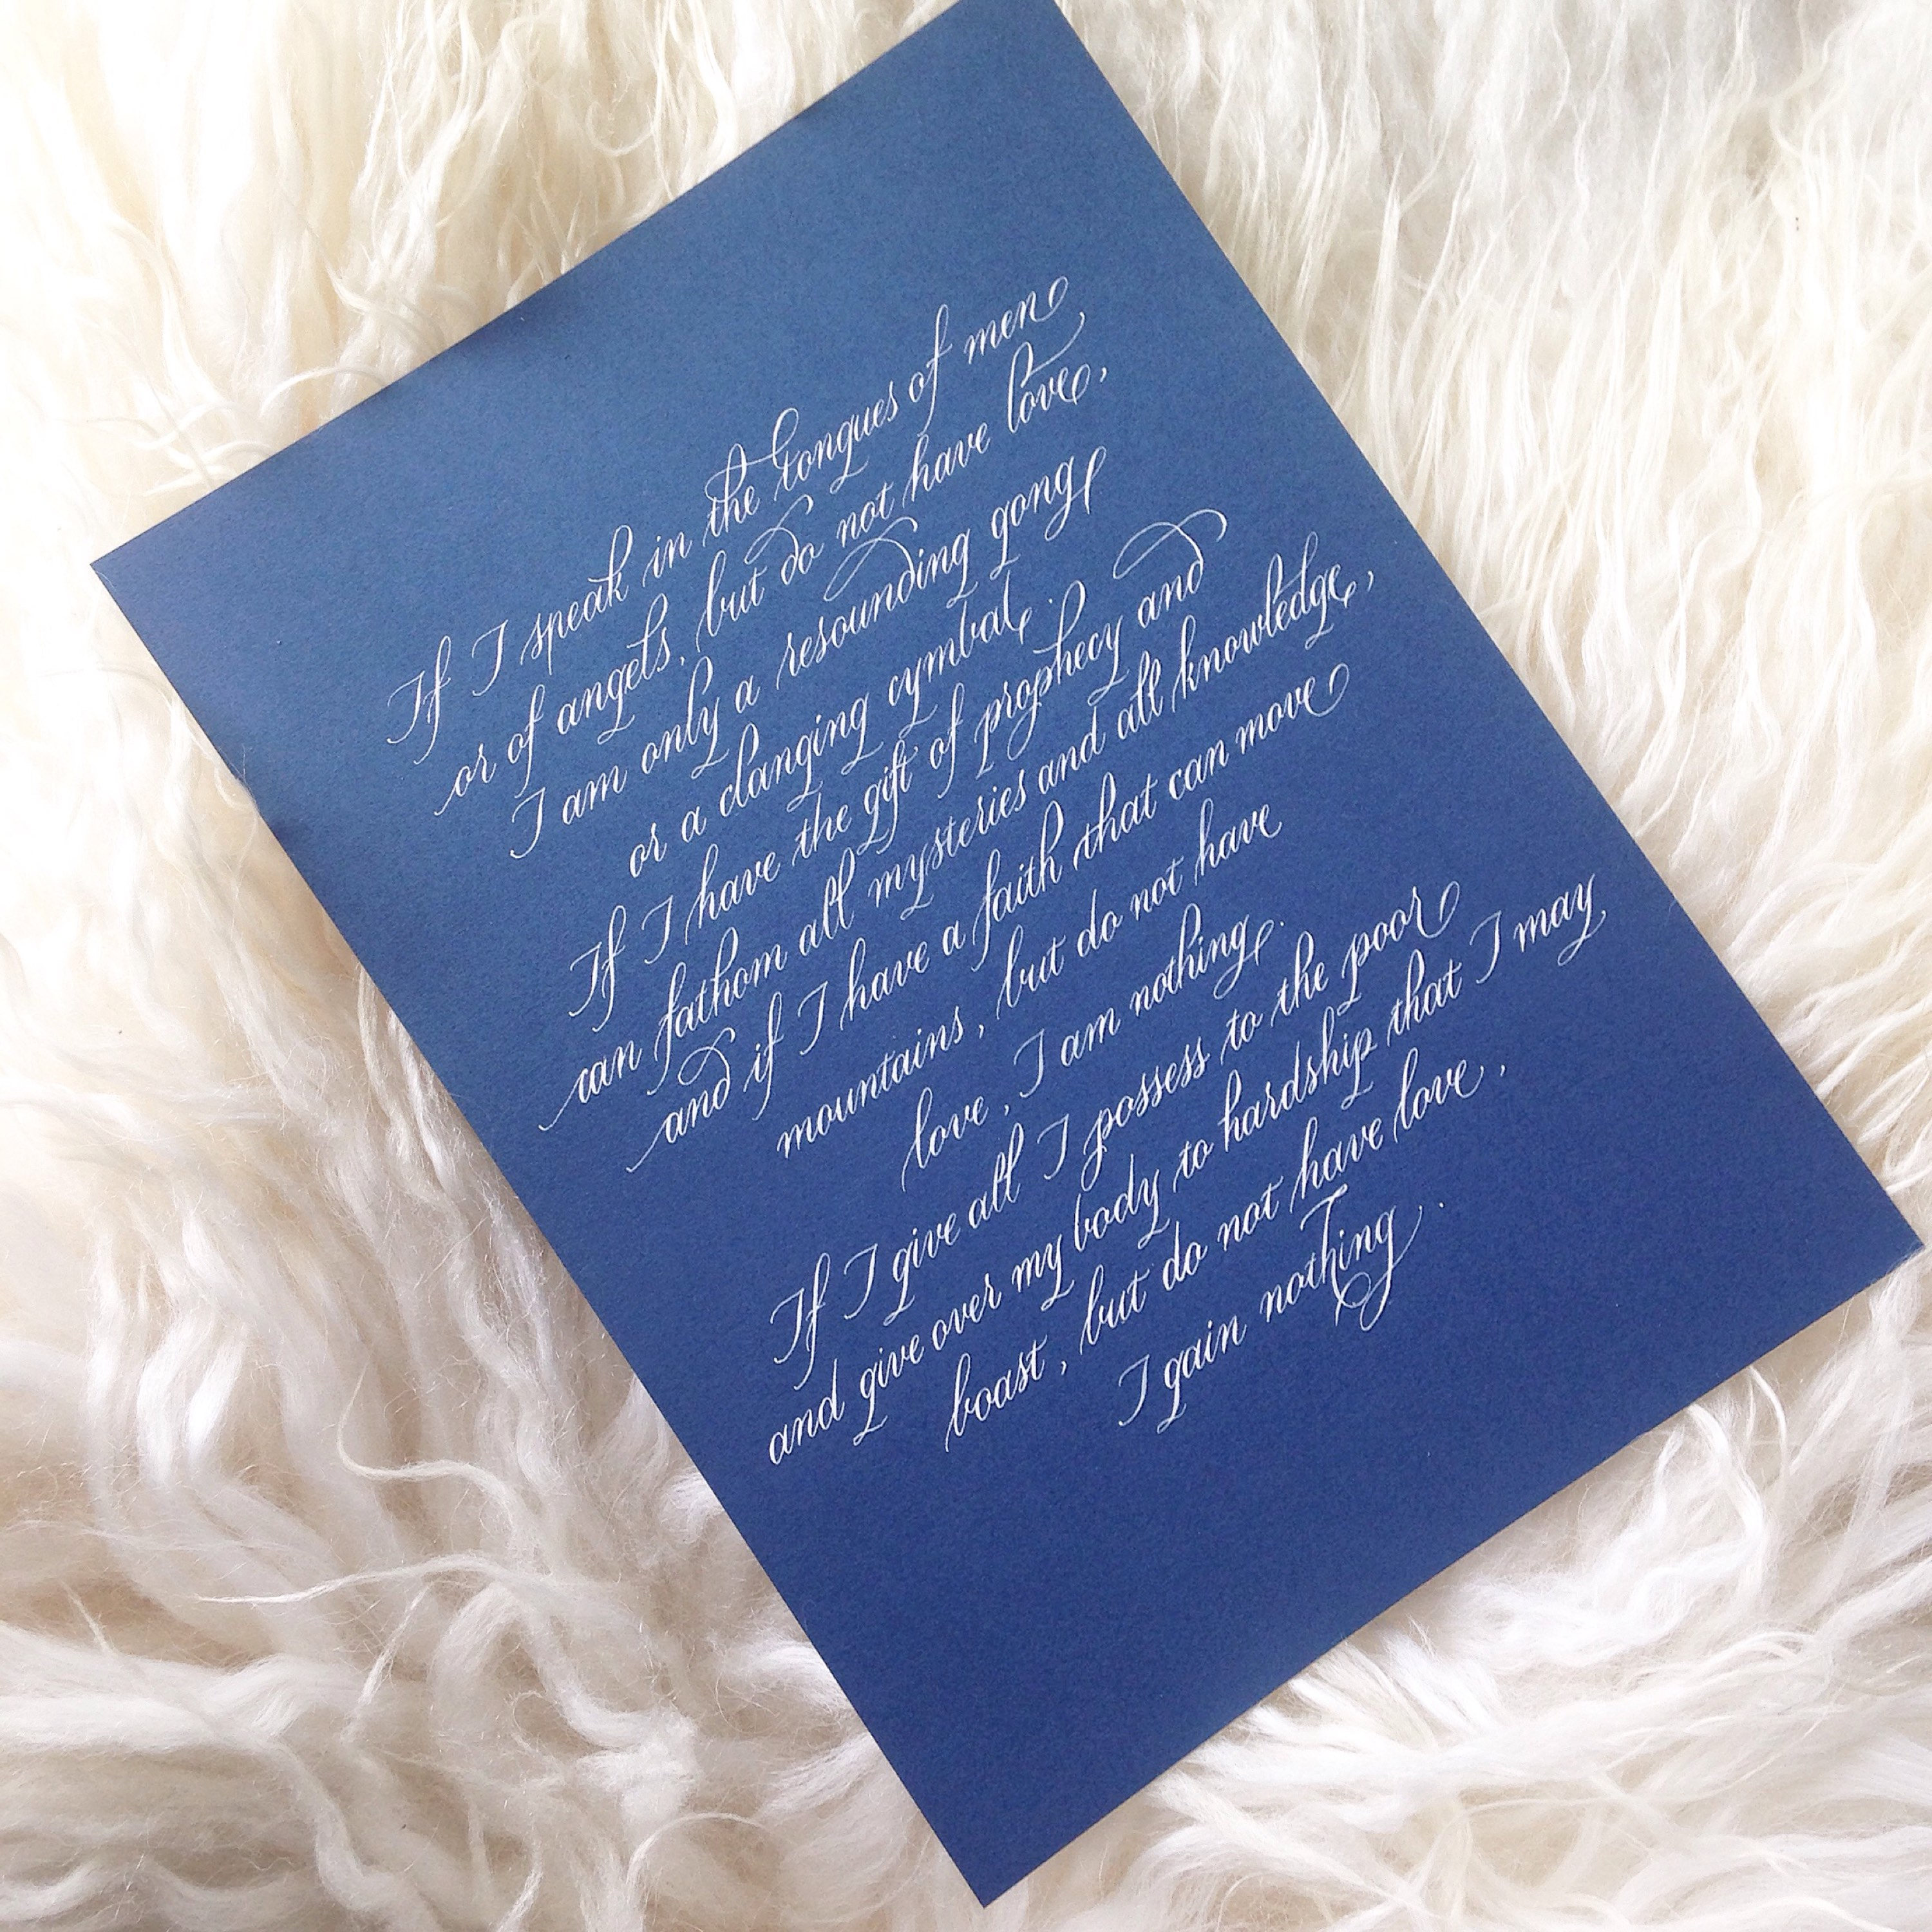 If I speak in the tongues of men
or of angels, but do not have love,
I am only a resounding gong
or a clanging cymbal.
If I have the gift of prophecy and
can fathom all mysteries and all knowledge,
and if I have a faith that can move
mountains, but do not have
love, I am nothing.
If I give all I possess to the poor
and give over my body to hardship that I may
boast, but do not have love,
I gain nothing.